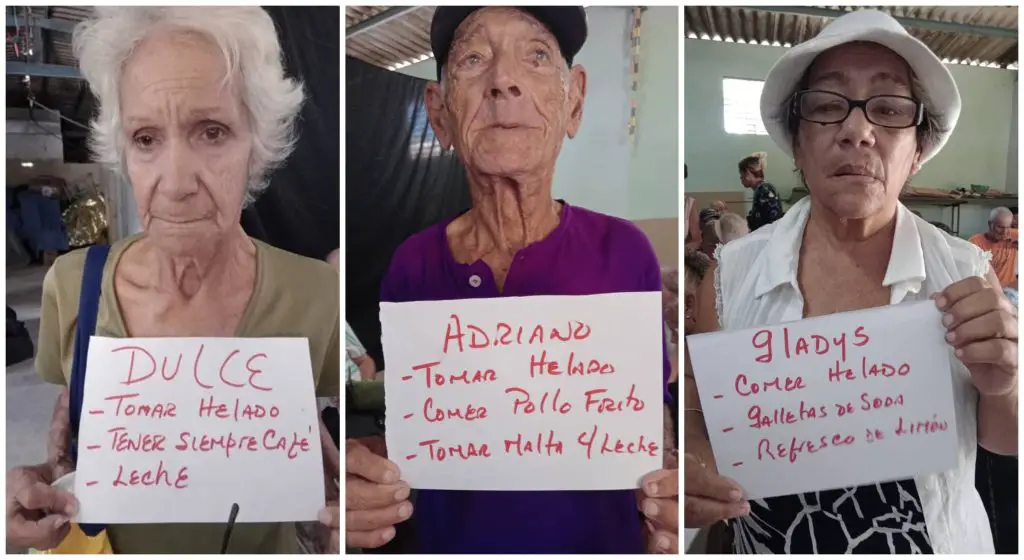 DULCE
- TOMAR HELADO
- TENER SIEMPRE CAFÉ
- LECHE
ADRIANO
- TOMAR HELADO
- COMER POLLO FRITO
- TOMAR MALTA Y LECHE
GLADYS
- COMER HELADO
- GALLETAS DE SODA
- REFRESCO DE LIMÓN